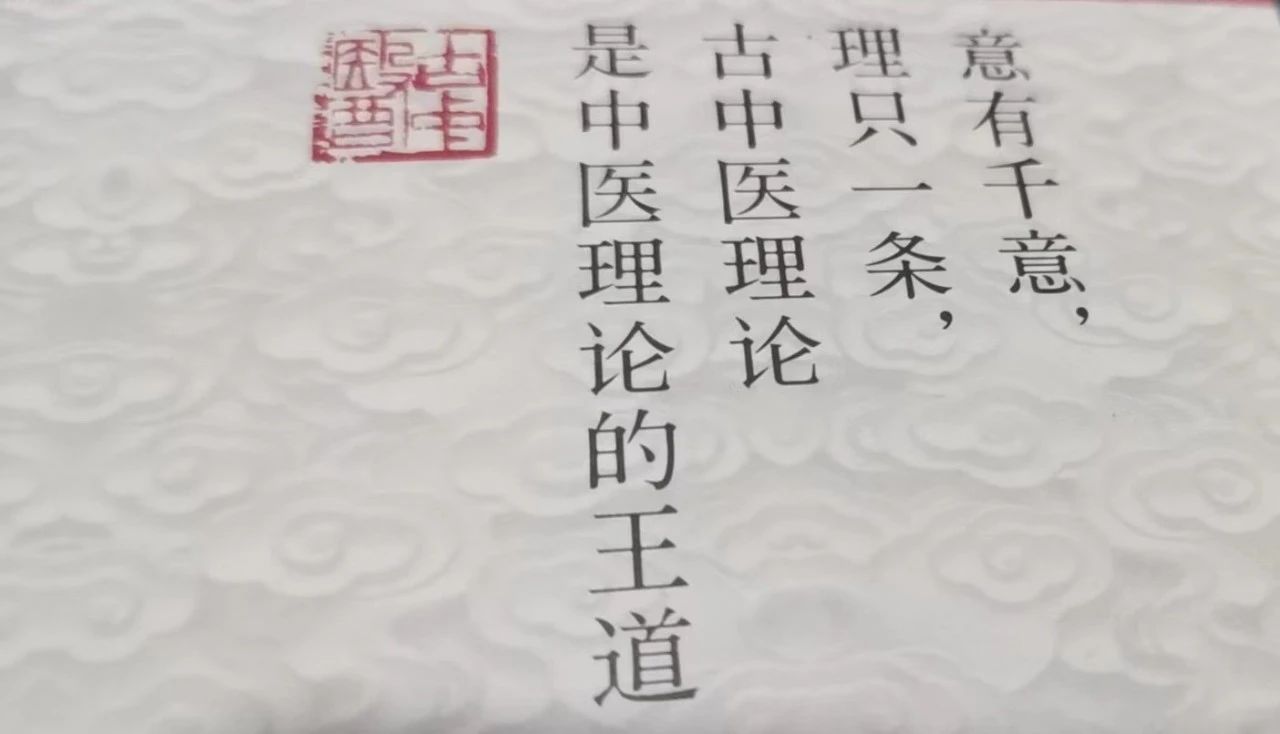 意有千意，
理只一条，
古中医理论
是中医理论的王道
古中
醫